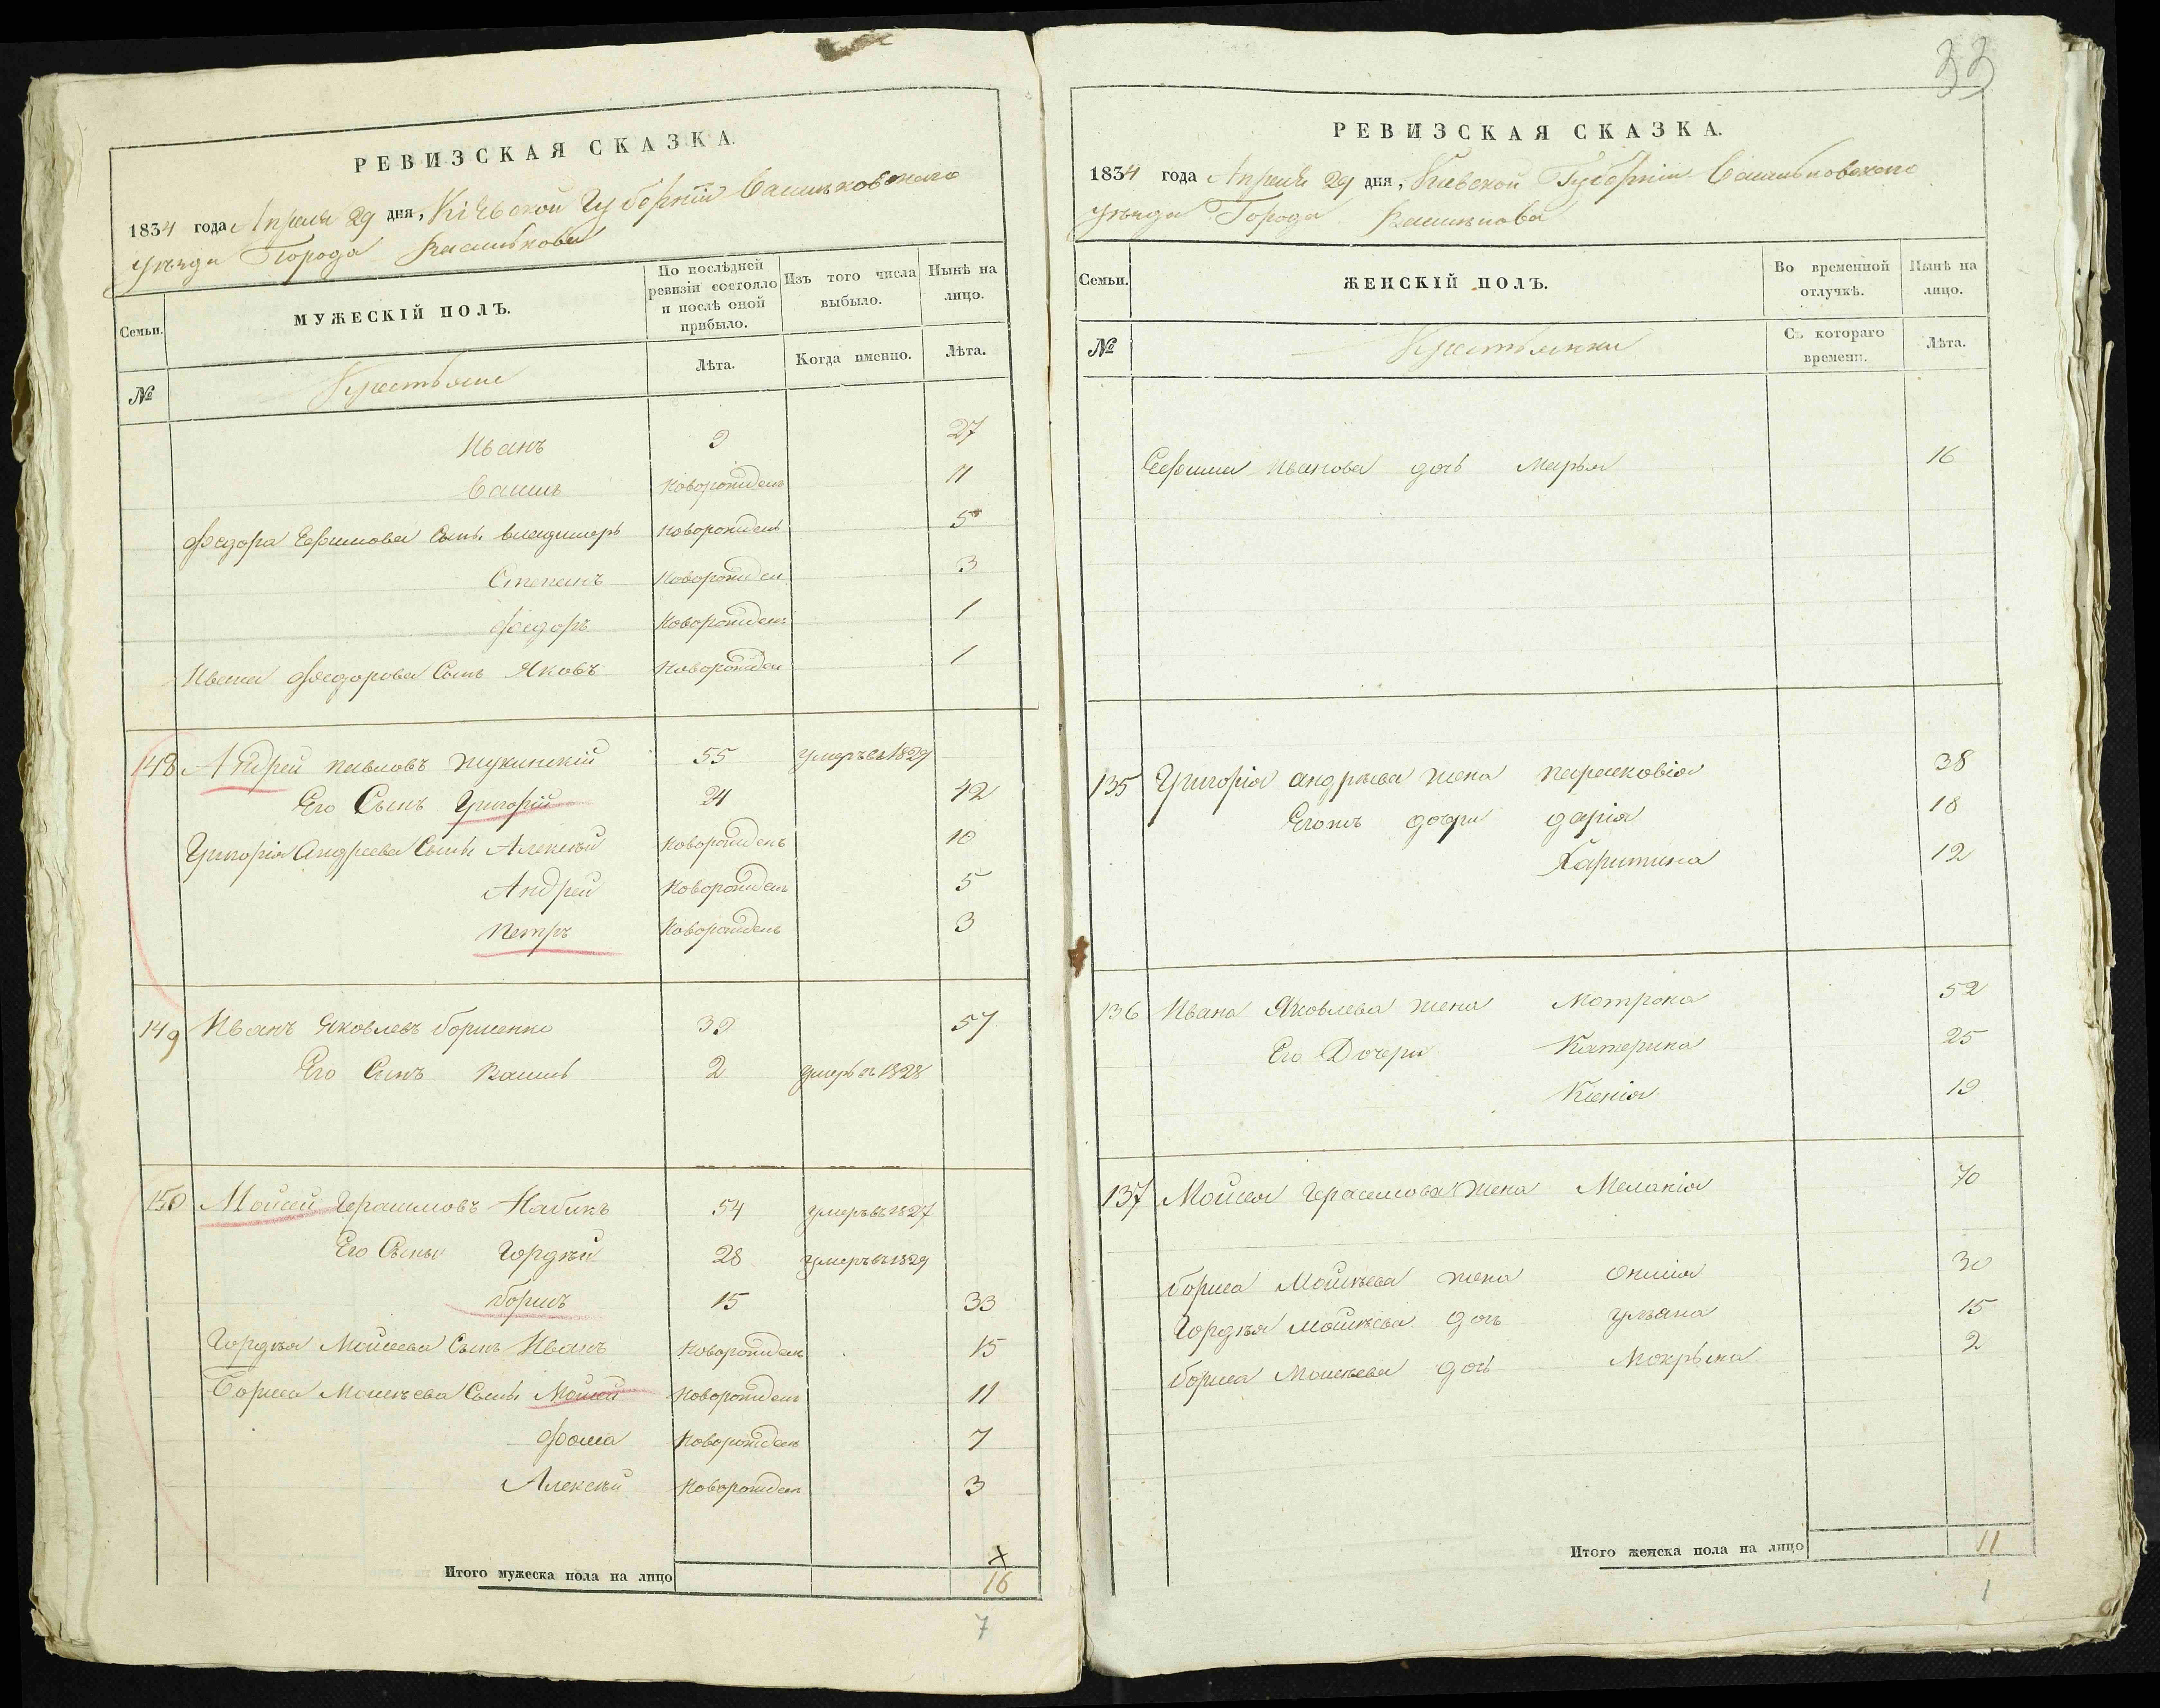 РЕВИЗСКАЯ СКАЗКА.
1834 года Апреля 29 дня, Кіевской Губерніи Васильковского
Уѣзда Города Василькова
Семьи.
МУЖЕСКІЙ ПОЛЪ.
По послѣдней ревизіи состояло и послѣ оной прибыло.
Изъ того числа выбыло.
Нынѣ на лицо.
№
Крестьяне
Лѣта.
Когда именно.
Лѣта.
Иванъ 9 27
Василь Новорожденъ 11
Федора Ефимова Сынъ владимеръ Новорожденъ 5
Степанъ Новорожден 3
Федоръ Новорожденъ 1
Ивана Федорова Сынъ Яковъ Новорожден 1
148 Андрей павловъ Жукинскій 55 умеръ въ 1829
Его Сынъ Григорій 24 42
Григорія Андреева Сынъ Алексѣй Новорожденъ 10
Андрей Новорожденъ 5
Петръ Новорожденъ 3
149 Иванъ Яковлевъ Борщенко 39 57
Его Сынъ Василь 2 умеръ въ 1828
150 Мойсей Герасимовъ Набокъ 54 умеръ въ 1827
Его Сыны Гордѣй 28 умеръ въ 1829
Борисъ 15 33
Гордѣя Мойсеева Сынъ Иванъ Новорожденъ 15
Бориса Мойсѣева Сынъ Мойсей Новорожденъ 11
Фома Новорожденъ 7
Алексѣй Новорожден 3
Итого мужеска пола на лицо 16
7
33
РЕВИЗСКАЯ СКАЗКА.
1834 года Апреля 29 дня, Кіевской Губерніи Васильковского
Уѣзда Города Василькова
Семьи.
ЖЕНСКІЙ ПОЛЪ.
Во временной отлучкѣ.
Нынѣ на лицо.
№
Крестьянки
Съ котораго времени.
Лѣта.
Ефима Иванова дочь Марья 16
135 Григорія андрѣева жена параковія 38
Егожъ дочери дарія 18
Харитина 12
136 Ивана Яковлева жена Мотрона 52
Его Дочери Катерина 25
Ксенія 19
137 Мойсея Герасимова жена Меланія 70
Бориса Мойсѣева жена Онисія 30
Гордѣя Мойсѣева дочь ульяна 15
Бориса Мойсѣева дочь Мокрына 2
Итого женска пола на лицо 11
1